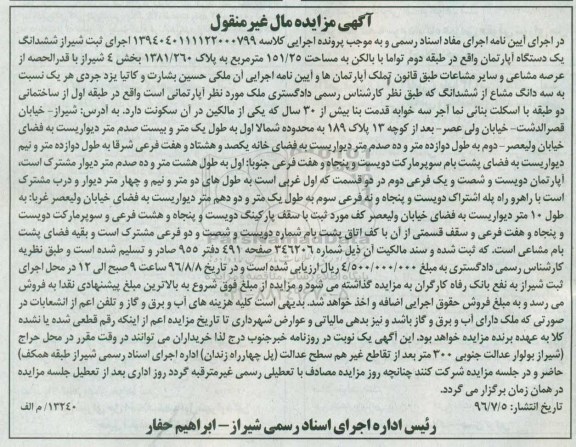 آگهی مزایده مال غیر منقول
در اجرای آیین نامه اجرای مفاد اسناد رسمی و به موجب پرونده اجرایی کلاسه ۱۳۹۴۰۴۰۱۱۱۱۲۲۰۰۰۷۹۹ اجرای ثبت شیراز ششدانگ
یک دستگاه آپارتمان واقع در طبقه دوم تواما با بالکن به مساحت ۱۵۱/۲۵ مترمربع به پلاک ۱۳۸۱/۲۶۰ بخش ۴ شیراز با قدرالحصه از
عرصه مشاعی و سایر مشاعات طبق قانون تملک آپارتمان ها و آیین نامه اجرایی آن ملکی حسین بشارت و کاتیا یزد جردی هر یک نسبت
به سه دانگ مشاع از ششدانگ که طبق نظر کارشناس رسمی دادگستری ملک مورد نظر آپارتمانی است واقع در طبقه اول از ساختمانی
دو طبقه با اسکلت بنائی نما آجر سه خوابه قدمت بنا بیش از ۳۰ سال که یکی از مالکین در آن سکونت دارد. به آدرس: شیراز- خیابان
قصرالدشت- خیابان ولی عصر- بعد از کوچه ۱۳ پلاک ۱۸۹ به محدوده شمالا اول به طول یک متر و بیست صدم متر دیواریست به فضای
خیابان ولیعصر- دوم به طول دوازده متر و ده صدم متر دیواریست به فضای خانه یکصد و هشتاد و هفت فرعی شرقا به طول دوازده متر و نیم
دیواریست به فضای پشت بام سوپرمارکت دویست و پنجاه و هفت فرعی جنوبا: اول به طول هشت متر و ده صدم متر دیوار مشترک است،
آپارتمان دویست و شصت و یک فرعی دوم در دو قسمت که اول غربی است به طول های دو متر و نیم و چهار متر دیوار و درب مشترک
است با راهرو راه پله اشتراک دویست و پنجاه و نه فرعی سوم به طول یک متر و دو دهم متر دیواریست به فضای خیابان ولیعصر غربا: به
طول ۱۰ متر دیواریست به فضای خیابان ولیعصر کف مورد ثبت با سقف پارکینگ دویست و پنجاه و هشت فرعی و سوپرمارکت دویست
و پنجاه و هفت فرعی و سقف قسمتی از آن با کف اتاق پشت بام شماره دویست و شصت و دو فرعی مشترک است و بقیه فضای پشت
بام مشاعی است. که ثبت شده و سند مالکیت آن ذیل شماره ۳۴۶۲۰۶ صفحه ۴۹۱ دفتر ۹۵۵ صادر و تسلیم شده است و طبق نظریه
کارشناس رسمی دادگستری به مبلغ ۴/۵۰۰/۰۰۰/۰۰۰ ریال ارزیابی شده است و در تاریخ ۹۶/۸/۸ ساعت ۹ صبح الی ۱۲ در محل اجرای
ثبت شیراز به نفع بانک رفاه کارگران به مزایده گذاشته می شود و مزایده از مبلغ فوق شروع به بالاترین مبلغ پیشنهادی نقدا به فروش
می رسد و به مبلغ فروش حقوق اجرایی اضافه و اخذ خواهد شد. بدیهی است کلیه هزینه های آب و برق و گاز و تلفن اعم از انشعابات در
صورتی که ملک دارای آب و برق و گاز باشد و نیز بدهی مالیاتی و عوارض شهرداری تا تاریخ مزایده اعم از اینکه رقم قطعی شده یا نشده
کلا به عهده برنده مزایده خواهد بود. این آگهی یک نوبت در روزنامه خبرجنوب درج لذا خریداران می توانند در وقت مقرر در محل حراج
(شیراز بولوار عدالت جنوبی ۳۰۰ متر بعد از تقاطع غیر هم سطح عدالت (پل چهارراه زندان) اداره اجرای اسناد رسمی شیراز طبقه همکف)
حاضر و در جلسه مزایده شرکت کنند چنانچه روز مزایده مصادف با تعطیلی رسمی غیرمترقبه گردد روز اداری بعد از تعطیل جلسه مزایده
در همان زمان برگزار می گردد.
تاریخ انتشار: ۹۶/۷/۵
۱۳۲۴۰/ م الف
رئیس اداره اجرای اسناد رسمی شیراز- ابراهیم حفار